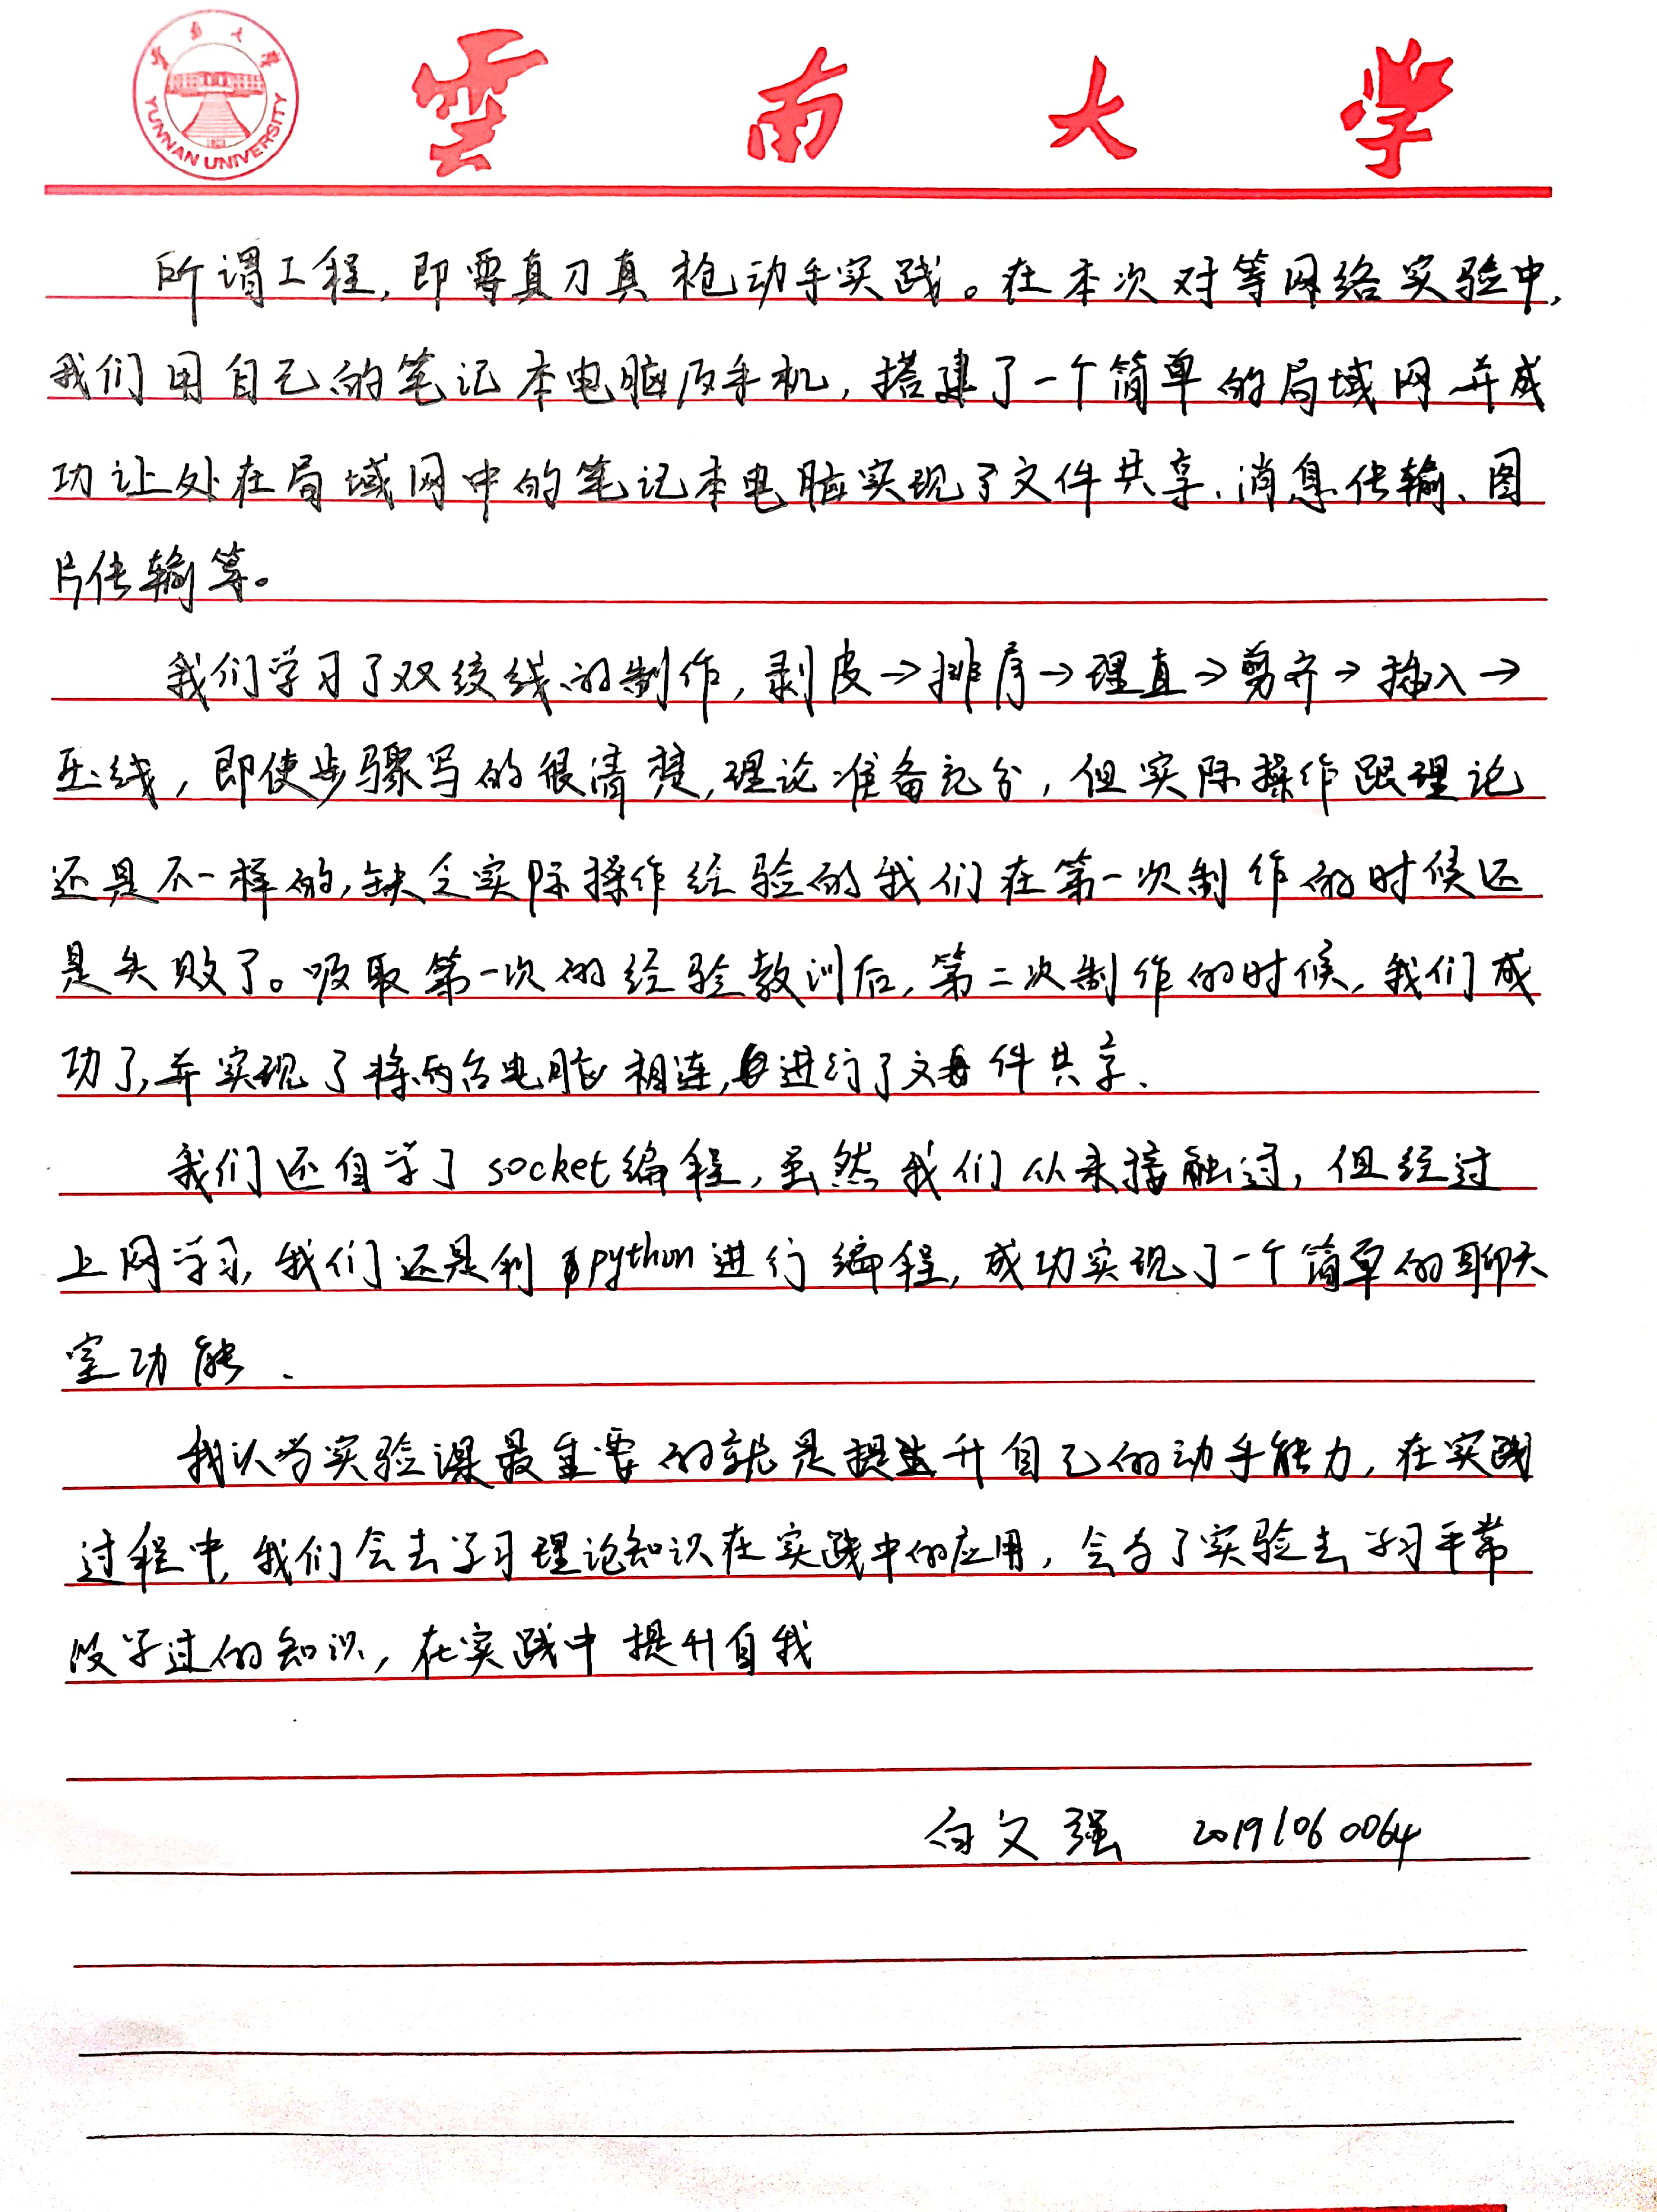 雲南大学
YUNNAN UNIVERSITY
所谓工程,即要真刀真枪动手实践。在本次对等网络实验中,
我们用自己的笔记本电脑及手机,搭建了一个简单的局域网并成
功让处在局域网中的笔记本电脑实现了文件共享、消息传输、图
片传输等。
我们学习了双绞线的制作,剥皮→排序→理直→剪齐→插入→
压线,即使步骤写的很清楚,理论准备充分,但实际操作跟理论
还是不一样的,缺乏实际操作经验的我们在第一次制作的时候还
是失败了。吸取第一次的经验教训后,第二次制作的时候,我们成
功了,并实现了将两台电脑相连,进行了文件共享.
我们还自学了socket编程,虽然我们从未接触过,但经过
上网学习,我们还是利用python进行编程,成功实现了一个简单的聊天
室功能.
我认为实验课最重要的就是提升自己的动手能力,在实践
过程中,我们会去学习理论知识在实践中的应用,会为了实验去学习平常
没学过的知识,在实践中提升自我
白文强 20191060064